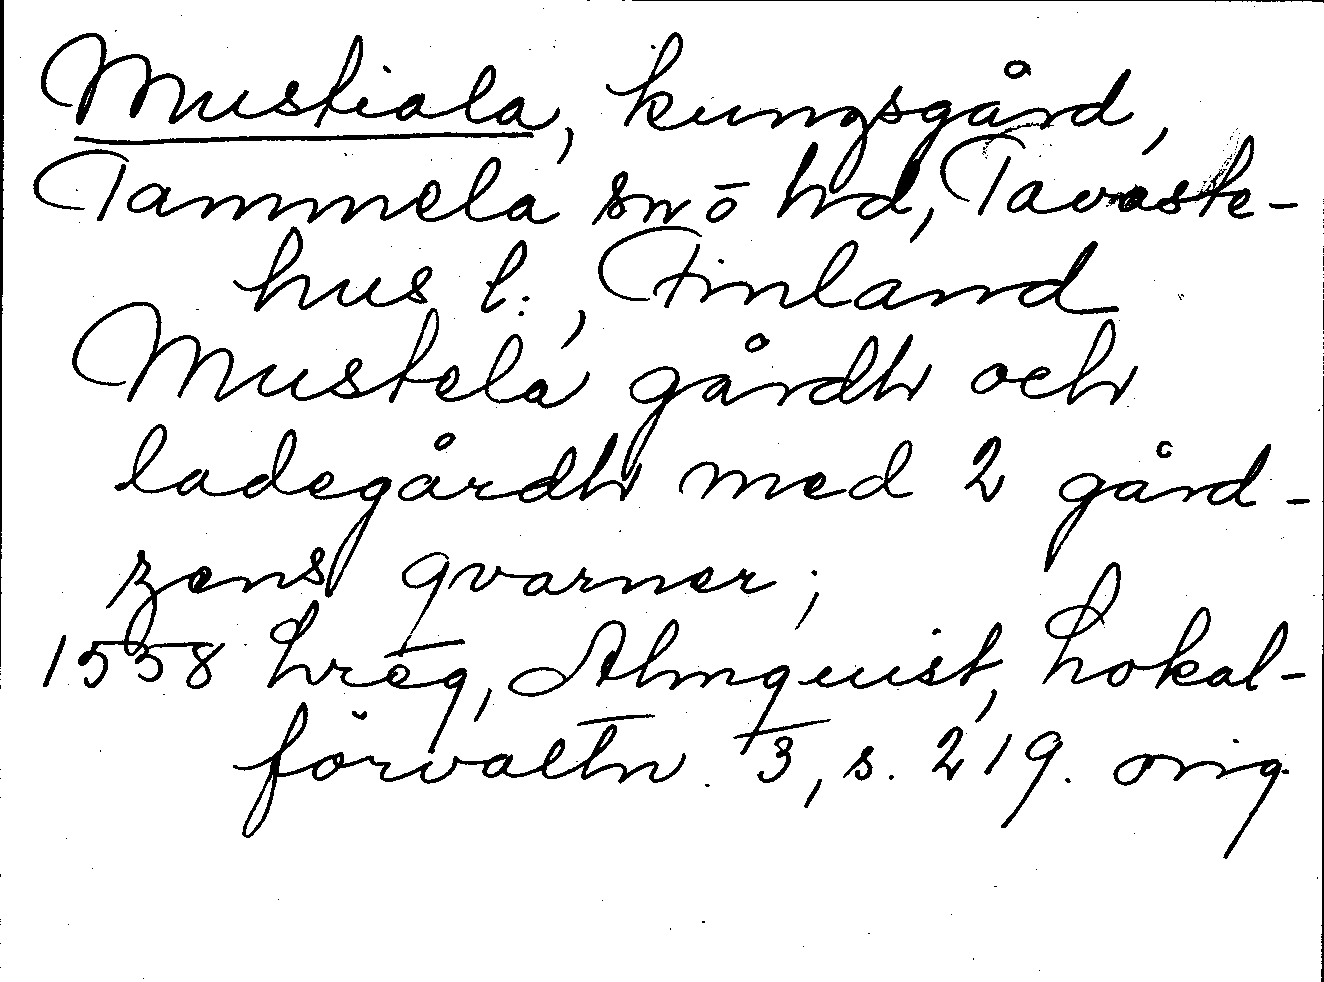 Mustiala, kungsgård,
Tammela sn o hd, Tavaste-
hus l:, Finland
Mustela gårdh och
ladegårdh med 2 gård-
zens qvarner;
1558 hreg, Almquist, Lokal-
förvaltn. 3, s. 219. orig.